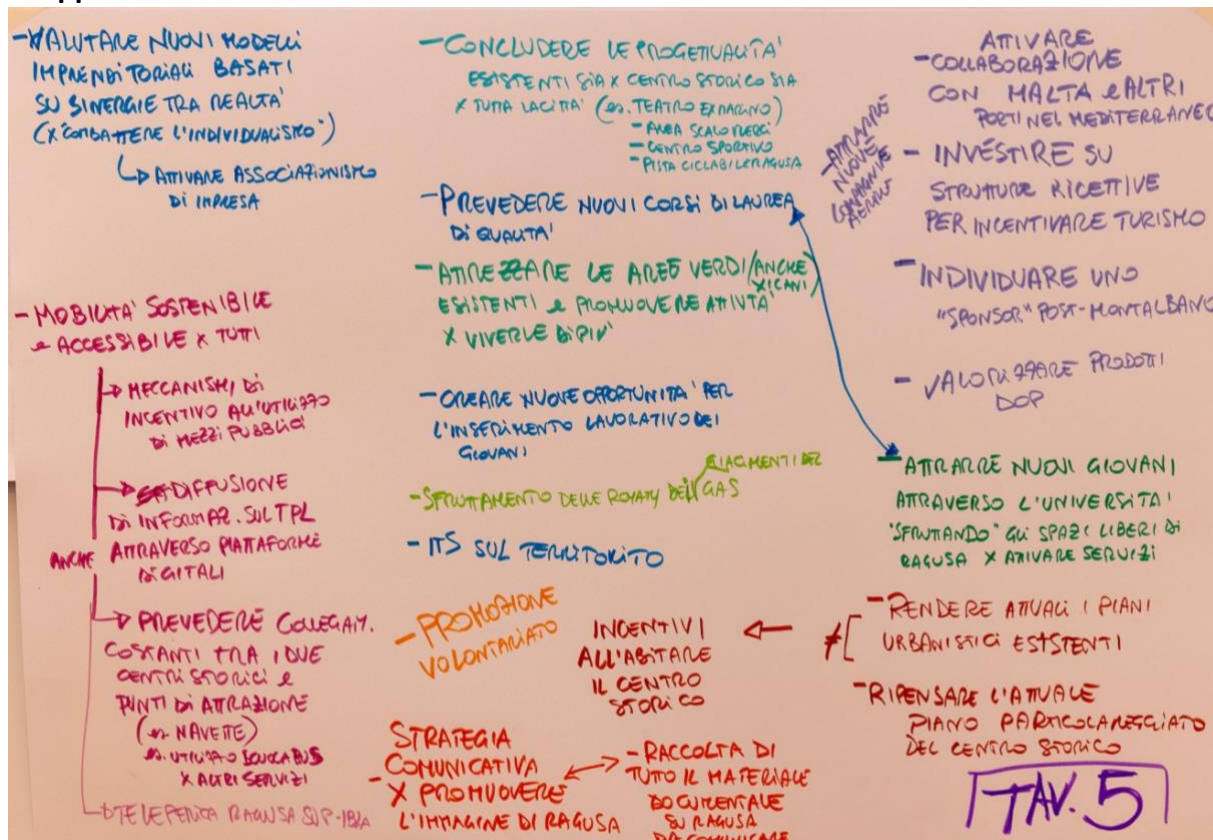 - VALUTARE NUOVI MODELLI
IMPRENDITORIALI BASATI
SU SINERGIE TRA REALTA'
(X "COMBATTERE L'INDIVIDUALISMO")
ATTIVARE ASSOCIAZIONISMO
DI IMPRESA
- MOBILITA' SOSTENIBILE
e ACCESSIBILE X TUTTI
MECCANISMI DI
INCENTIVO ALL'UTILIZZO
DI MEZZI PUBBLICI
DIFFUSIONE
DI INFORMAZ. SUL TPL
ANCHE ATTRAVERSO PIATTAFORME
DIGITALI
PREVEDERE COLLEGAM.
COSTANTI TRA I DUE
CENTRI STORICI e
PUNTI DI ATTRAZIONE
(es. NAVETTE)
es. UTILIZZO SCUOLABUS
X ALTRI SERVIZI
TELEFERICA RAGUSA SUP-IBLA
- CONCLUDERE LE PROGETTUALITA'
ESISTENTI SIA X CENTRO STORICO SIA
X TUTTA LA CITTA' (es. TEATRO EX MARINO)
- AREA SCALO MERCI
- CENTRO SPORTIVO
- PISTA CICLABILE RAGUSA
- PREVEDERE NUOVI CORSI DI LAUREA
DI QUALITA'
- ATTREZZARE LE AREE VERDI (ANCHE
X I CANI)
ESISTENTI e PROMUOVERE ATTIVTA'
X VIVERLE DI PIU'
- CREARE NUOVE OPPORTUNITA' PER
L'INSERIMENTO LAVORATIVO DEI
GIOVANI
- SFRUTTAMENTO DELLE ROYATY DELL GIACIMENTI DEL
GAS
- ITS SUL TERRITORITO
- PROMOZIONE
VOLONTARIATO
INCENTIVI
ALL'ABITARE
IL CENTRO
STORICO
STRATEGIA
- COMUNICATIVA
X PROMUOVERE
L'IMMAGINE DI RAGUSA
- RACCOLTA DI
TUTTO IL MATERIALE
DOCUMENTALE
SU RAGUSA
DA COMUNICARE
ATTIVARE
- COLLABORAZIONE
CON MALTA e ALTRI
PORTI NEL MEDITERRANEO
- ATTRARRE
NUOVE
COMPAGNIE
AEREE
- INVESTIRE SU
STRUTTURE RICETTIVE
PER INCENTIVARE TURISMO
- INDIVIDUARE UNO
"SPONSOR" POST-MONTALBANO
- VALORIZZARE PRODOTTI
DOP
- ATTRARRE NUOVI GIOVANI
ATTRAVERSO L'UNIVERSITA'
"SFRUTTANDO" GLI SPAZI LIBERI DI
RAGUSA X ATTIVARE SERVIZI
- RENDERE ATTUALI I PIANI
URBANISTICI ESISTENTI
- RIPENSARE L'ATTUALE
PIANO PARTICOLAREGGIATO
DEL CENTRO STORICO
TAV. 5